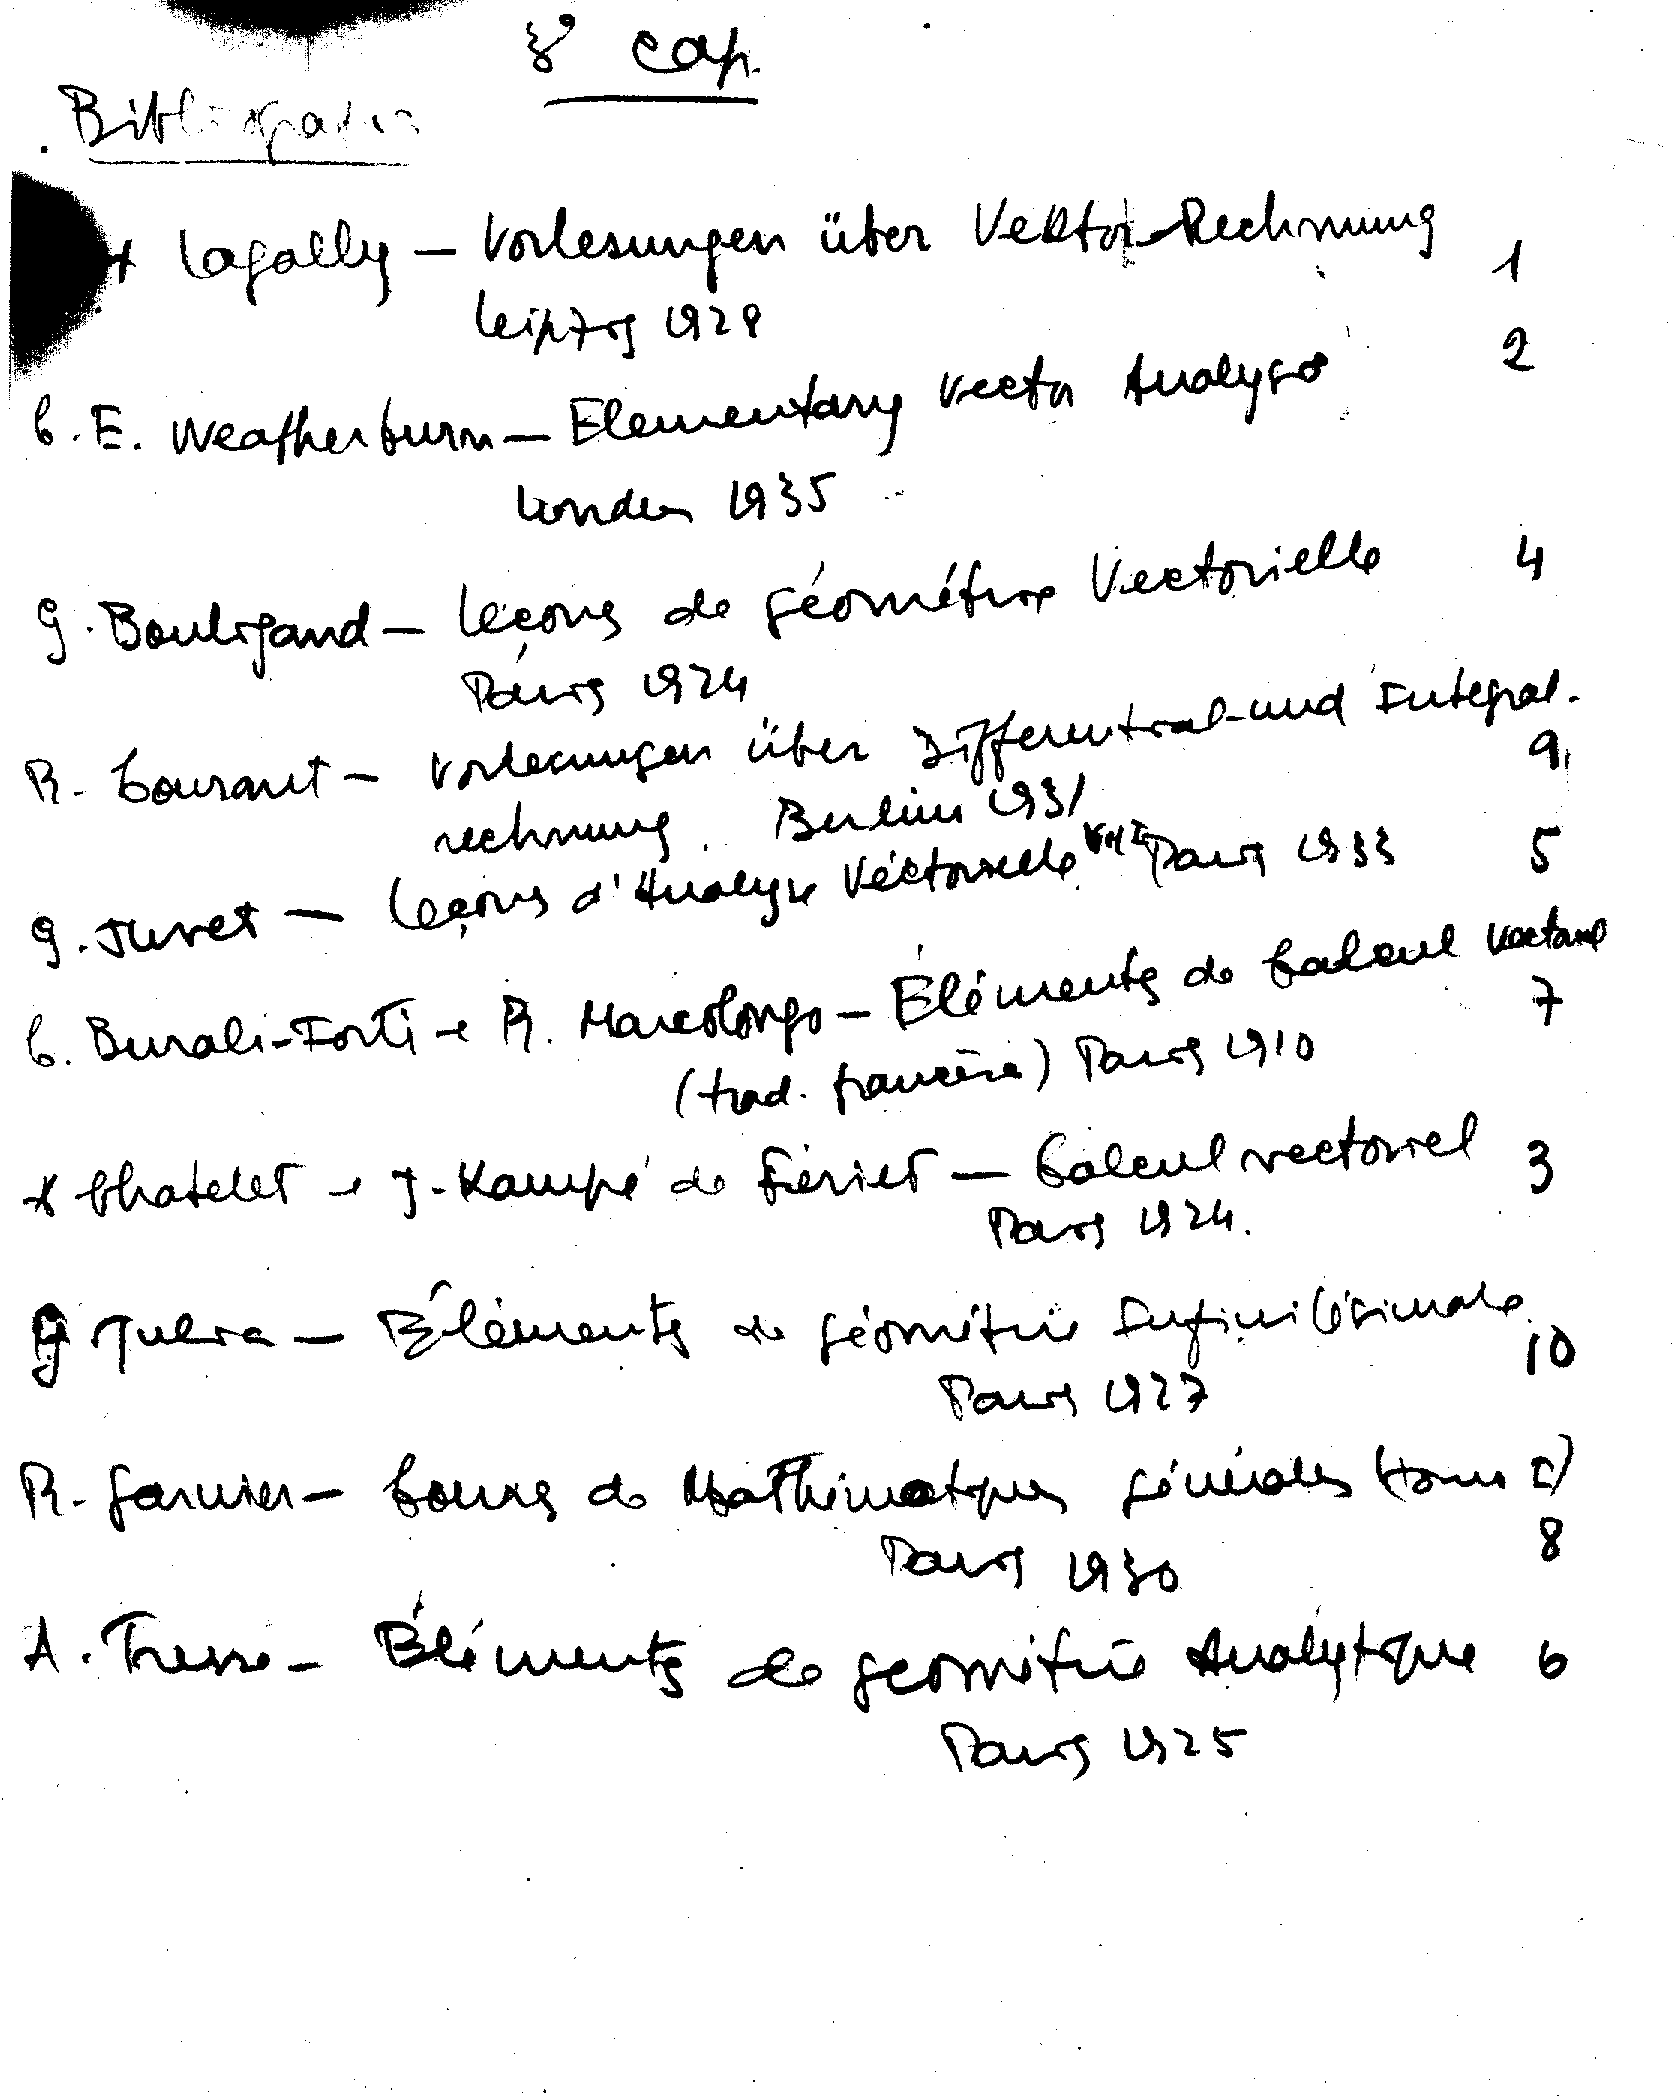 3º Cap.
Bibliografia
x Lagally – Vorlesungen über Vektor-Rechnung 1
Leipzig 1928
C. E. Weatherburn – Elementary Vector Analysis 2
London 1935
G. Bouligand – Leçons de géométrie Vectorielle 4
Paris 1924
R. Courant – Vorlesungen über Differential-und Integral-
rechnung. Berlin 1931 9
G. Juvet – Leçons d'Analyse Vectorielle Vol I Paris 1933 5
C. Burali-Forti e R. Marcolongo – Éléments de Calcul Vectoriel
(trad. francesa) Paris 1910 7
x Chatelet e J. Kampé de Fériet – Calcul vectoriel 3
Paris 1924.
G Julia – Éléments de géométrie Infinitésimale
Paris 1927 10
R. Garnier – Cours de Mathématiques générales (tome I)
Paris 1930 8
A. Tresse – Éléments de géométrie Analytique 6
Paris 1925